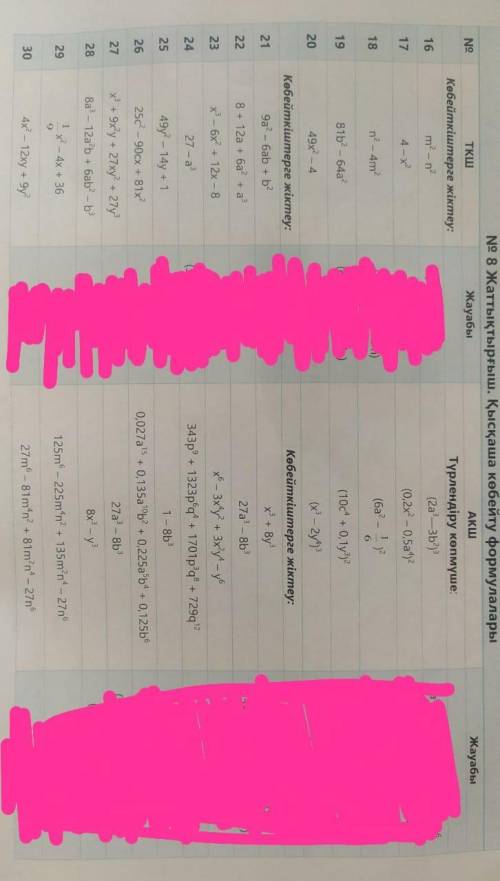 № 8 Жаттықтырғыш. Қысқаша көбейту формулалары
№ ТКШ Жауабы АКШ Жауабы
Көбейткіштерге жіктеу: Түрлендіру көпмүше:
16 m² − n² (2a³ − 3b²)³
17 4 − x² (0,2x² − 0,5a⁴)²
18 n² − 4m² (6a² − 1/6)²
19 81b² − 64a² (10c⁴ + 0,1y³)²
20 49x² − 4 (x³ − 2y⁴)³
Көбейткіштерге жіктеу: Көбейткіштерге жіктеу:
21 9a² − 6ab + b² x³ + 8y³
22 8 + 12a + 6a² + a³ 27a³ − 8b³
23 x³ − 6x² + 12x − 8 x⁶ − 3x⁴y² + 3x²y⁴ − y⁶
24 27 − a³ 343p⁹ + 1323p⁶q⁴ + 1701p³q⁸ + 729q¹²
25 49y² − 14y + 1 1 − 8b³
26 25c² − 90cx + 81x² 0,027a¹⁵ + 0,135a¹⁰b² + 0,225a⁵b⁴ + 0,125b⁶
27 x³ + 9x²y + 27xy² + 27y³ 27a³ − 8b³
28 8a³ − 12a²b + 6ab² − b³ 8x³ − y³
29 1/9 x² − 4x + 36 125m⁶ − 225m⁴n² + 135m²n⁴ − 27n⁶
30 4x² − 12xy + 9y² 27m⁶ − 81m⁴n² + 81m²n⁴ − 27n⁶